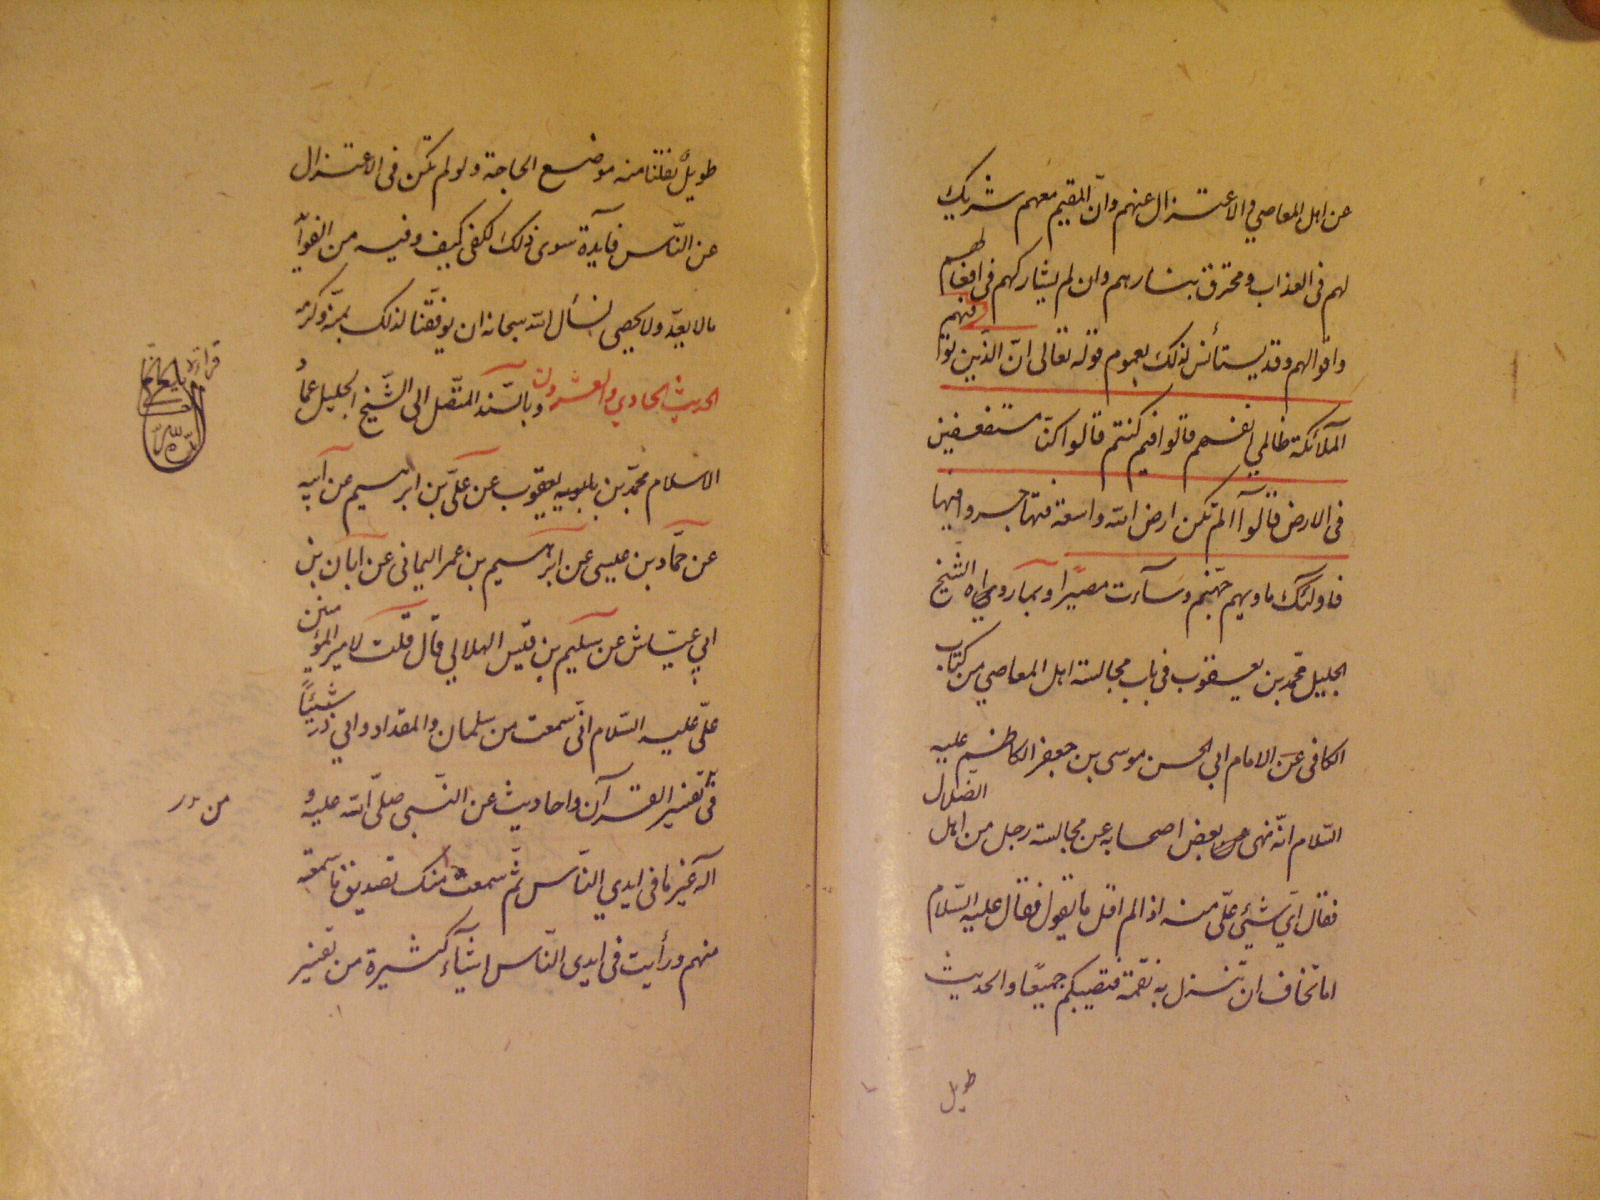 عن اهل المعاصي والاعتزال عنهم وانّ المقيم معهم شريك
لهم في العذاب ومحترق بنارهم وان لم يشاركهم في افعالهم
واقوالهم وقد يستأنس لذلك بعموم قوله تعالى انّ الّذين توفّيهم
الملآئكة ظالمي انفسهم قالوا فيم كنتم قالوا كنّا مستضعفين
في الارض قالوآ الم تكن ارض الله واسعة فتهاجروا فيها
فاولئك ماويهم جهنّم وسآءت مصيرًا وبما رواه الشّيخ
الجليل محمّد بن يعقوب في باب مجالسة اهل المعاصي من كتاب
الكافي عن الامام ابي الحسن موسى بن جعفر الكاظم عليه
السّلام انّه نهى بعض اصحابه عن مجالسة رجل من اهل الضّلال
فقال ايّ شيئ علىّ منه اذا لم اقل ما يقول فقال عليه السّلام
اما تخاف ان تنزل به نقمة فتصيبكم جميعًا والحديث
طويل
طويل نقلنا منه موضع الحاجة ولو لم تكن في الاعتزال
عن النّاس فآيدة سوى ذلك لكفى كيف وفيه من الفوآ
ما لا يعدّ ولا يحصى نسأل الله سبحانه ان يوفّقنا لذلك بمنّه وكرمه
الحديث الحادي والعشرون وبالسّند المتّصل الى الشّيخ الجليل عماد
الاسلام محمّد بن بابويه يعقوب عن علىّ بن ابرهيم عن ابيه
عن حمّاد بن عيسى عن ابرهيم بن عمر اليماني عن ابان بن
ابي عيّاش عن سليم بن قيس الهلالي قال قلت لامير المؤمنين
علىّ عليه السّلام انّى سمعت من سلمان والمقداد وابي ذر شيئًا
في تفسير القرآن واحاديث عن النّبي صلّى الله عليه و
آله غير ما في ايدي النّاس ثمّ سمعت منك تصديق ما سمعته
منهم ورأيت في ايدى النّاس اشيآء كثيرة من تفسير